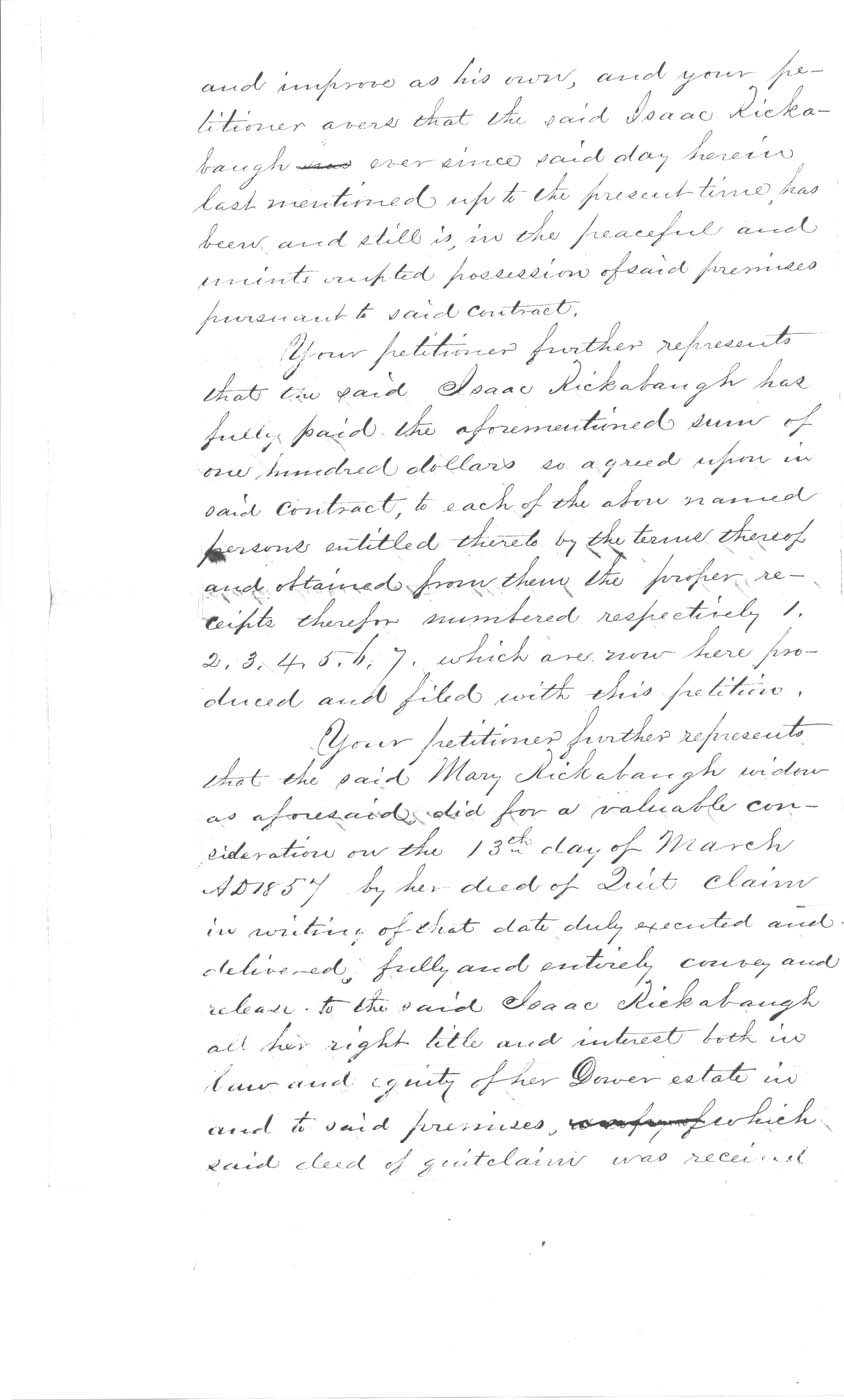 and improve as his own, and your pe-
titioner avers that the said Isaac Ricka-
baugh ever since said day herein
last mentioned up to the present time, has
been and still is, in the peaceful and
uninterrupted possession of said premises
pursuant to said contract.
Your petitioner further represents
that the said Isaac Rickabaugh has
fully paid the aforementioned sum of
one hundred dollars so agreed upon in
said contract, to each of the above named
persons entitled thereto by the terms thereof
and obtained from them the proper re-
ceipts therefor numbered respectively 1.
2. 3. 4. 5. 6. 7. which are now here pro-
duced and filed with this petition.
Your petitioner further represents
that the said Mary Rickabaugh widow
as aforesaid, did for a valuable con-
sideration on the 13th day of March
AD 1857 by her deed of Quit claim
in writing of that date duly executed and
delivered, fully and entirely convey and
release to the said Isaac Rickabaugh
all her right title and interest both in
law and equity of her Dower estate in
and to said premises, which
said deed of quitclaim was received